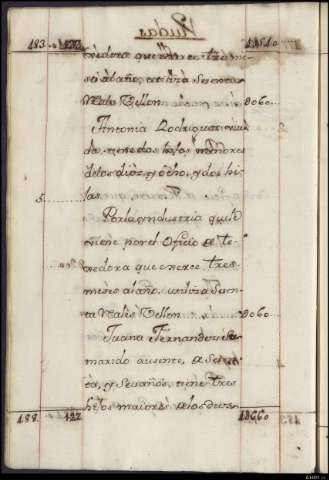 Viudas
183.
texedora que exerce tres me-
ses al año, utiliza sesenta
Reales Vellon 0060..
Antonia Rodriguez viu-
da, tiene dos hijos menores
de los diez y ocho, y dos hi-
5 jas
Por la yndustria que le
viene por el Oficio de te-
xedora que exerce tres
meses al año, utiliza sesen-
ta Reales Vellon 0060.
Juana Fernandez su
marido ausente, de sesen-
ta, y seis años, tiene tres
hijos maiores de los diez
188. 122 13660